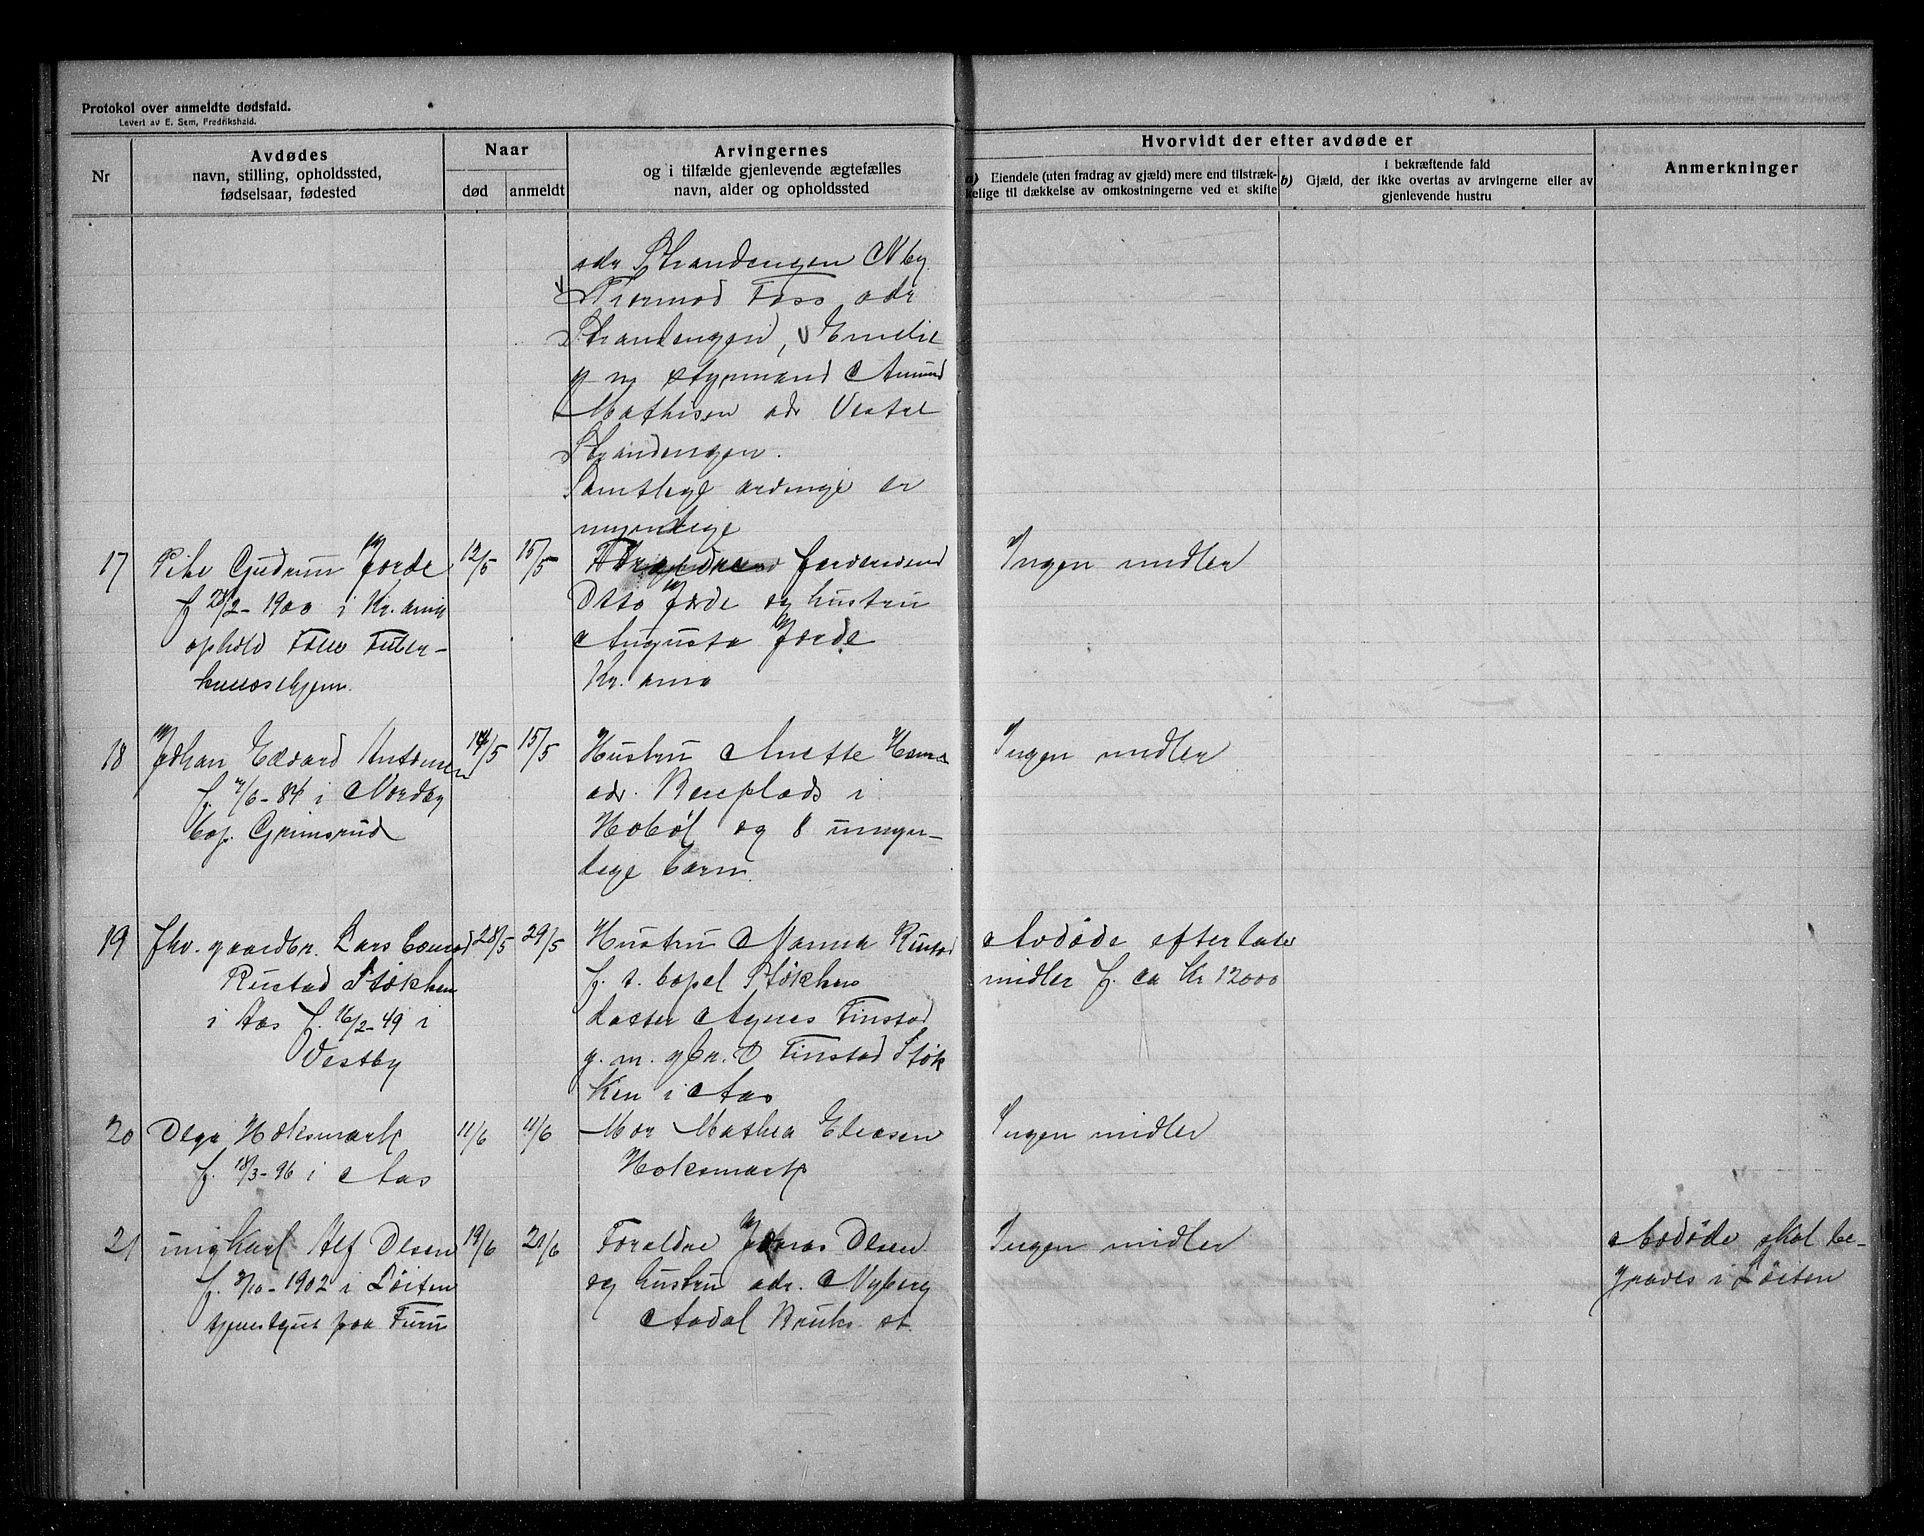 Protokol over anmeldte dødsfald.
Levert av E. Sem, Fredrikshald.
Nr
Avdødes
navn, stilling, opholdssted,
fødselsaar, fødested
Naar
død
anmeldt
Arvingernes
og i tilfælde gjenlevende ægtefælles
navn, alder og opholdssted
Hvorvidt der efter avdøde er
a) Eiendele (uten fradrag av gjæld) mere end tilstræk-
kelige til dækkelse av omkostningerne ved et skifte
I bekræftende fald
b) Gjæld, der ikke overtas av arvingerne eller av
gjenlevende hustru
Anmerkninger
adr Strandengen Nby
Tormod Foss adr
Strandengen, Emelie
g m styrmand Amund
Mathisen adr Vestre
Strandengen.
Samtlige arvinge er
myndige
17 Pike Gudrun Jorde 12/5 15/5
f 28/2-1900 i Kr. ania
ophold Follo Tuber-
kuloshjem.
Forældre
Otto Jorde og hustru
Augusta Jorde
Kr. ania
Ingen midler
18 Johan Edvard Antonsen 14/5 15/5
f. 7/6-84 i Nordby
bop. Grimsrud
Hustru Anette
adr. Berplads i
Hobøl og 8 umyn-
dige barn.
Ingen midler
19 fhv. gaardbr. Lars Conrad 28/5 29/5
Rustad Støkken
i Aas f. 16/2-49 i
Vestby
Hustru Nanna Rustad
f. t. bopel Støkken
datter Agnes Finstad
g. m. gbr. O Finstad Støk
ken i Aas
Avdøde efterlater
midler f. ca Kr 12000
20 Olga Holksmark 11/6 11/6
f. 18/3-96 i Aas
Mor Mathea Eliasen
Holksmark
Ingen midler
21 ungkarl Alf Olsen 19/6 20/6
f. 3/10-1902 i Löiten
tjenestgut paa Furu
Foraldre Jonas Olsen
og hustru adr. Nyberg
Aadal Bruks st.
Ingen midler
Avdøde skal be-
graves i Löiten